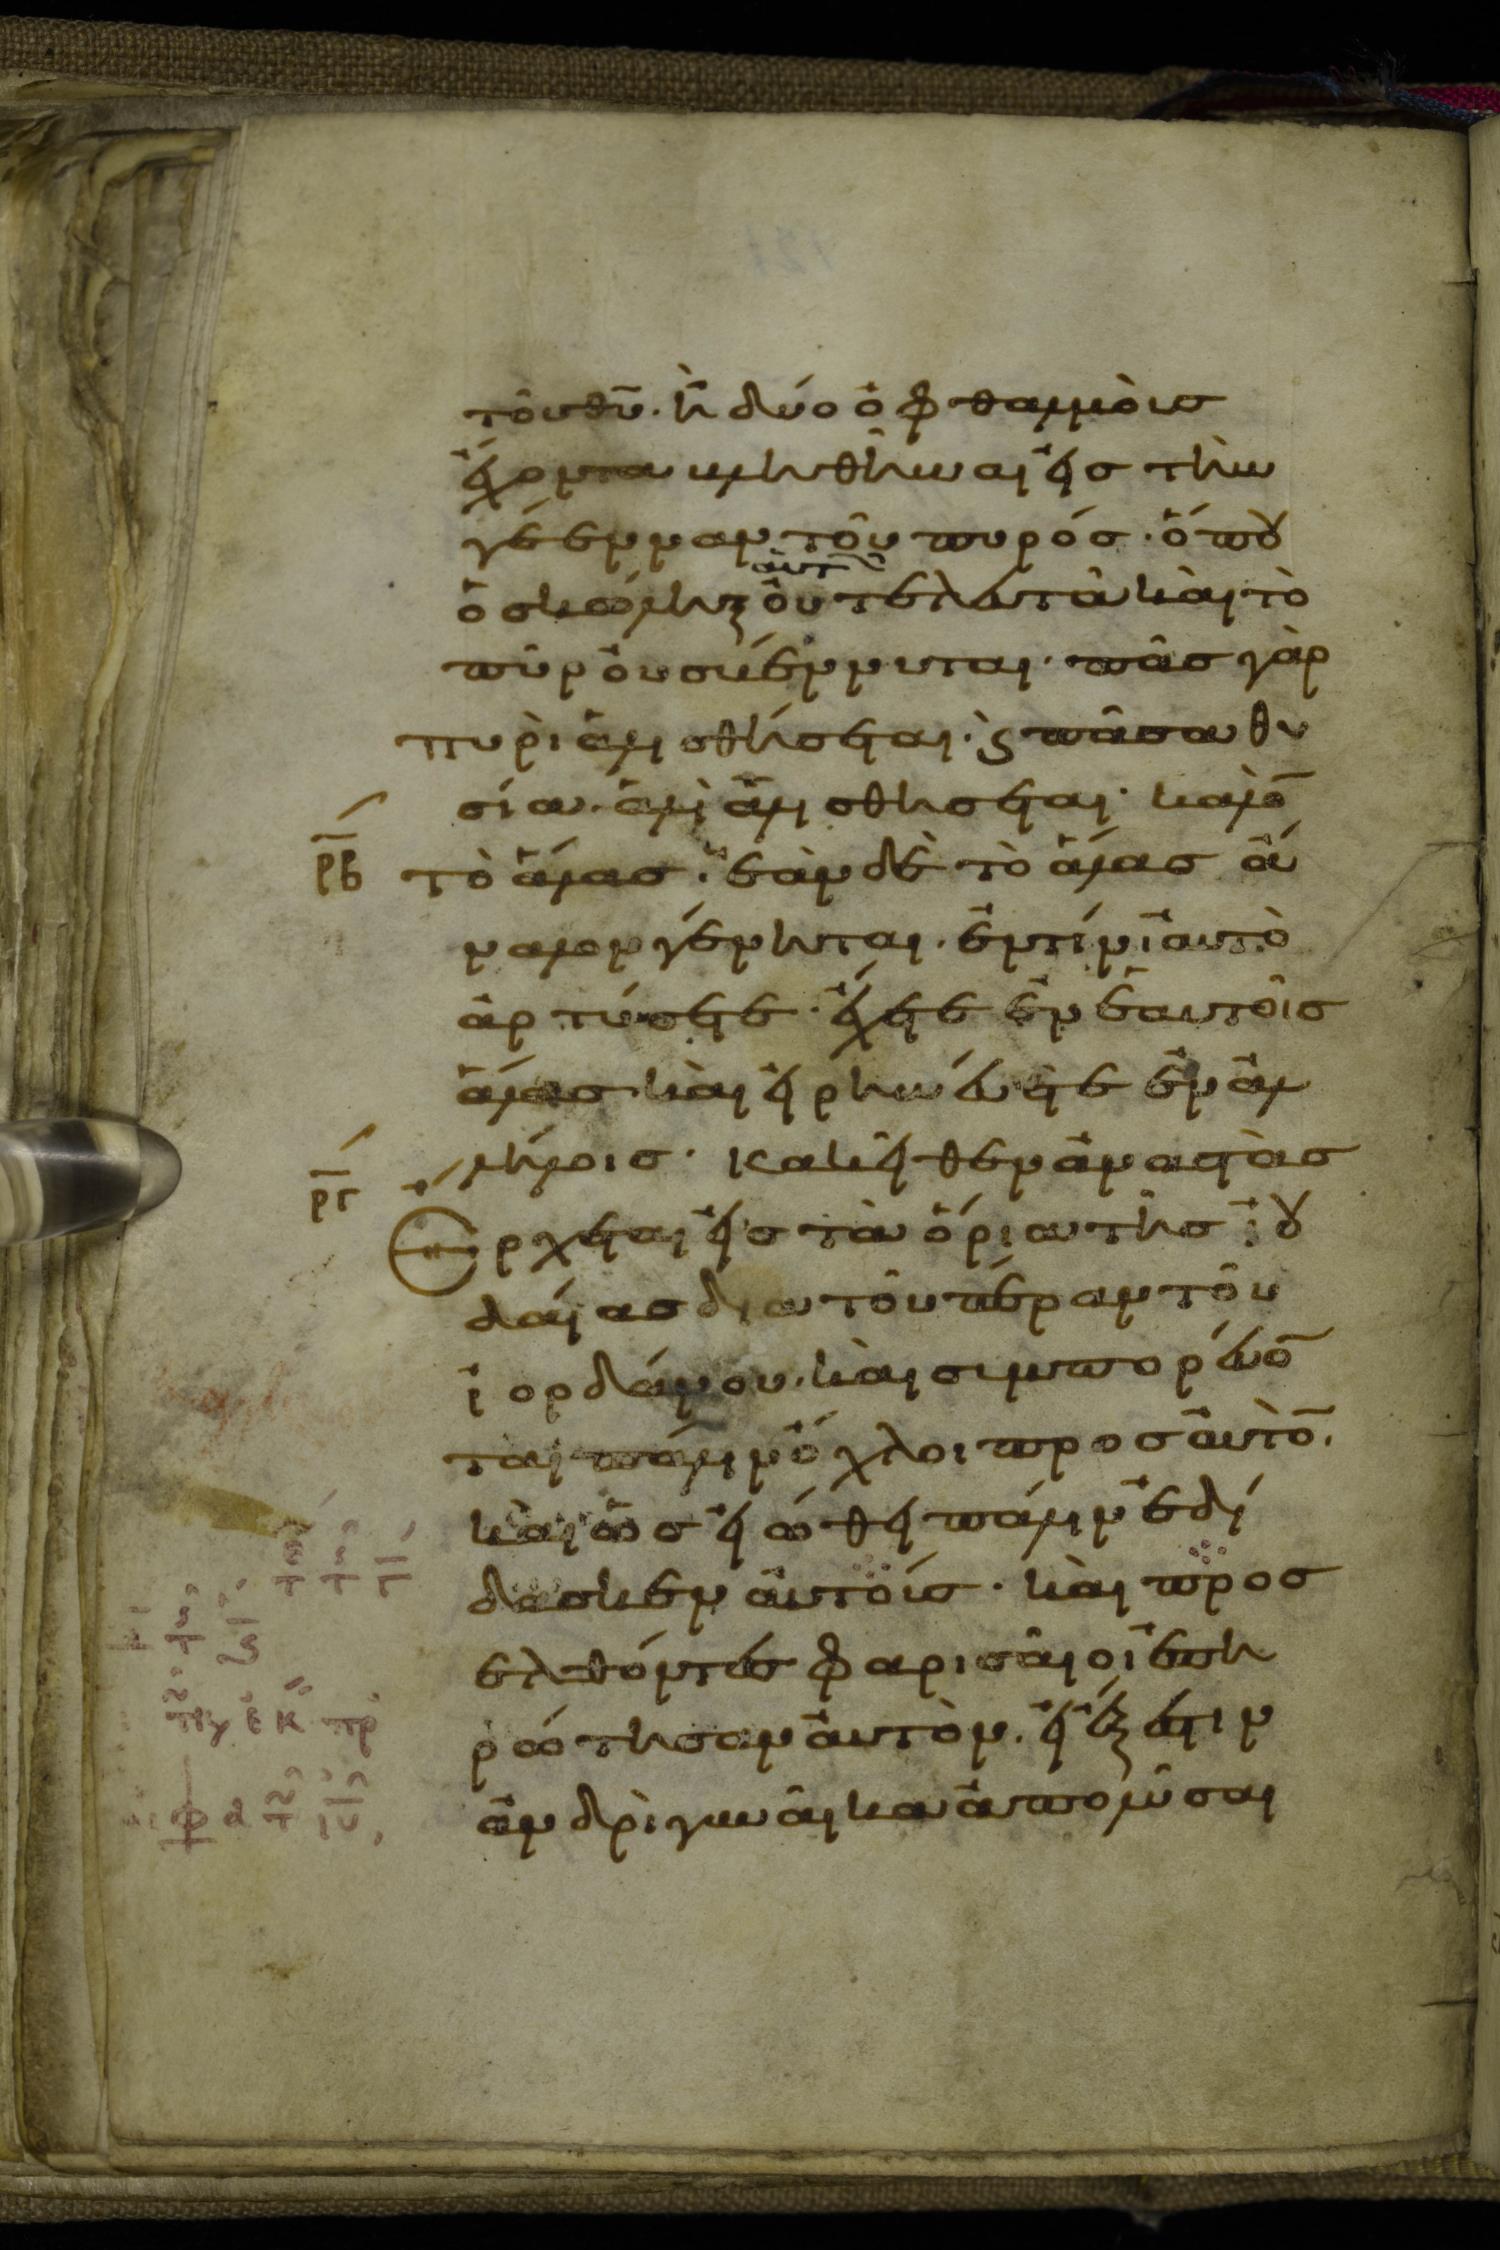 τοῦ θῦ. ἢ δύο ὀφθαλμοὺς
ἔχοντα βληθῆναι εἰς τὴν
γέενναν τοῦ πυρός. ὅπου
ὁ σκώληξ αὐτῶν οὐ τελευτᾶ καὶ τὸ
πῦρ οὐ σβέννυται. πᾶς γὰρ
πυρὶ ἁλισθήσεται. ϗ πᾶσα θυ
σία ἁλὶ ἁλισθήσεται. καλὸ̄
ρβ τὸ ἅλας. ἐὰν δὲ τὸ ἅλας ἄ
ναλον γένηται. ἐν τίνι αὐτὸ
ἀρτύσετε. ἔχετε ἐν ἑαυτοῖς
ἅλας καὶ εἰρηνεύετε ἐν ἀλ
λήλοις. κακεῖθεν ἀναστὰς
ργ Ἔρχεται εἰς τὰ ὅρια τῆς ἰου
δαίας διὰ τοῦ πέραν τοῦ
ἰορδάνου. καὶ συμπορεύο̄
ται πάλιν ὄχλοι προς αὐτὸ̄.
καὶ ὡς εἰώθει πάλιν ἐδί
δασκεν αὐτοίς. καὶ προσ
ελθόντες φαρισαῖοι ἐπη
ρώτησαν αὐτὸν. εἰ ἔξεστιν
ἀνδρὶ γυναῖκα ἀπολῦσαι